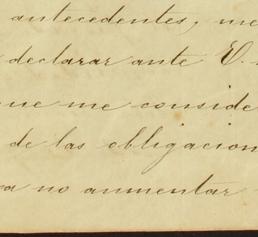 antecedentes, me
declarar ante E.
que me conside
de las obligacion
no aumentar